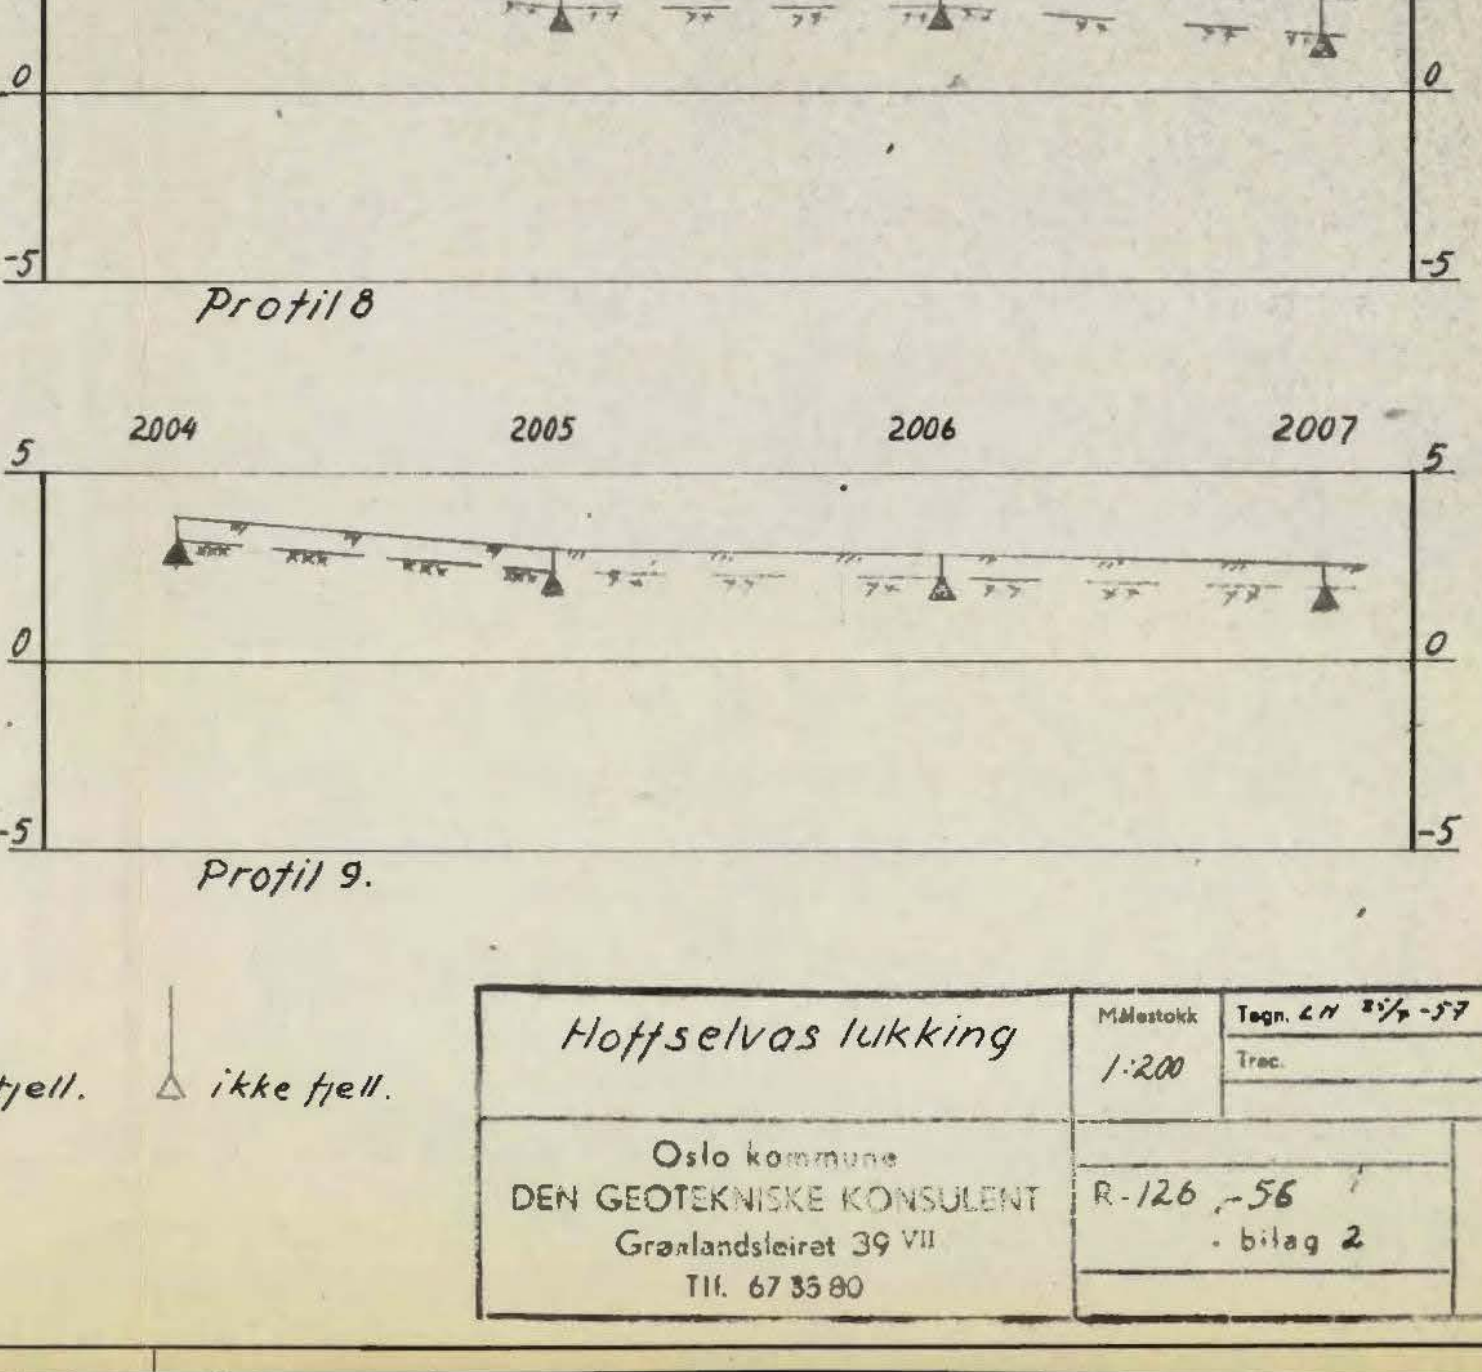 0 0
-5 -5
Profil 8
2004 2005 2006 2007
5 5
0 0
-5 -5
Profil 9.
fjell. ikke fjell.
Hoffselvas lukking
Målestokk
1:200
Tegn. LN -57
Trac.
Oslo kommune
DEN GEOTEKNISKE KONSULENT
Grønlandsleiret 39 VII
Tlf. 67 35 80
R-126 -56
bilag 2